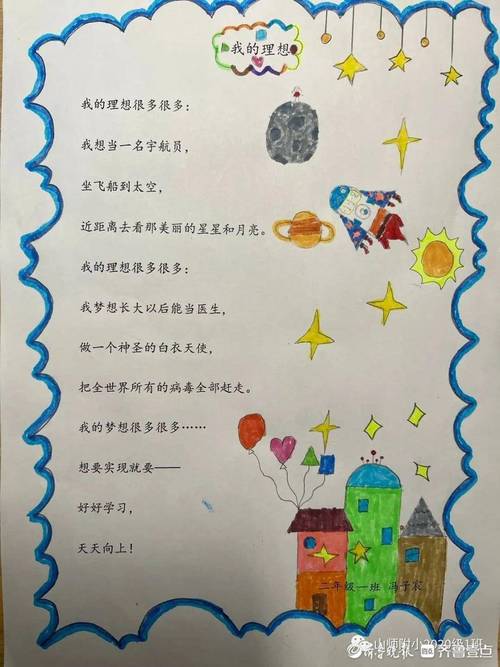 我的理想
我的理想很多很多：
我想当一名宇航员，
坐飞船到太空，
近距离去看那美丽的星星和月亮。
我的理想很多很多：
我梦想长大以后能当医生，
做一个神圣的白衣天使，
把全世界所有的病毒全部赶走。
我的梦想很多很多……
想要实现就要——
好好学习，
天天向上！
二年级一班 冯子宸
山师附小2020级1班
齐鲁晚报 齐鲁壹点